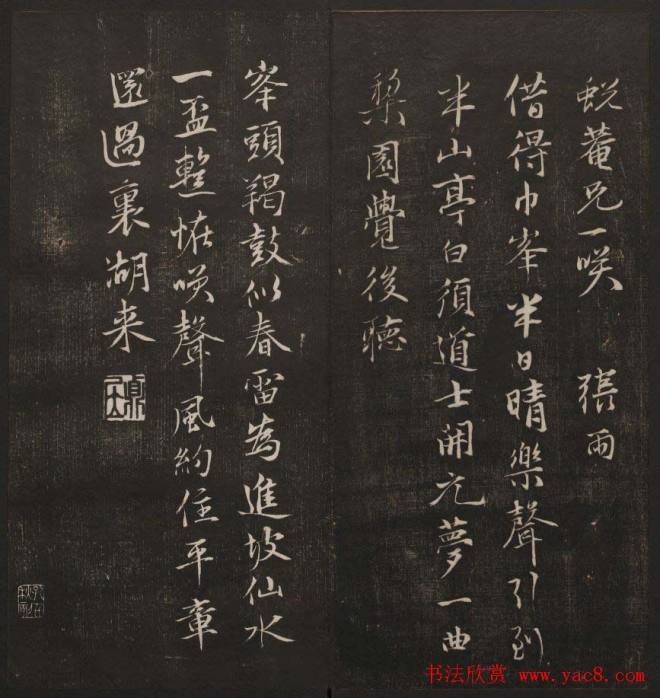 蜕菴兄一咲　張雨
借得巾峯半日晴樂聲引到
半山亭白須道士開元夢一曲
棃園覺後聴
峯頭羯鼓似春雷為進坡仙水
一盃輕恠咲聲風約住平章
還過裏湖来
书法欣赏 www.yac8.com